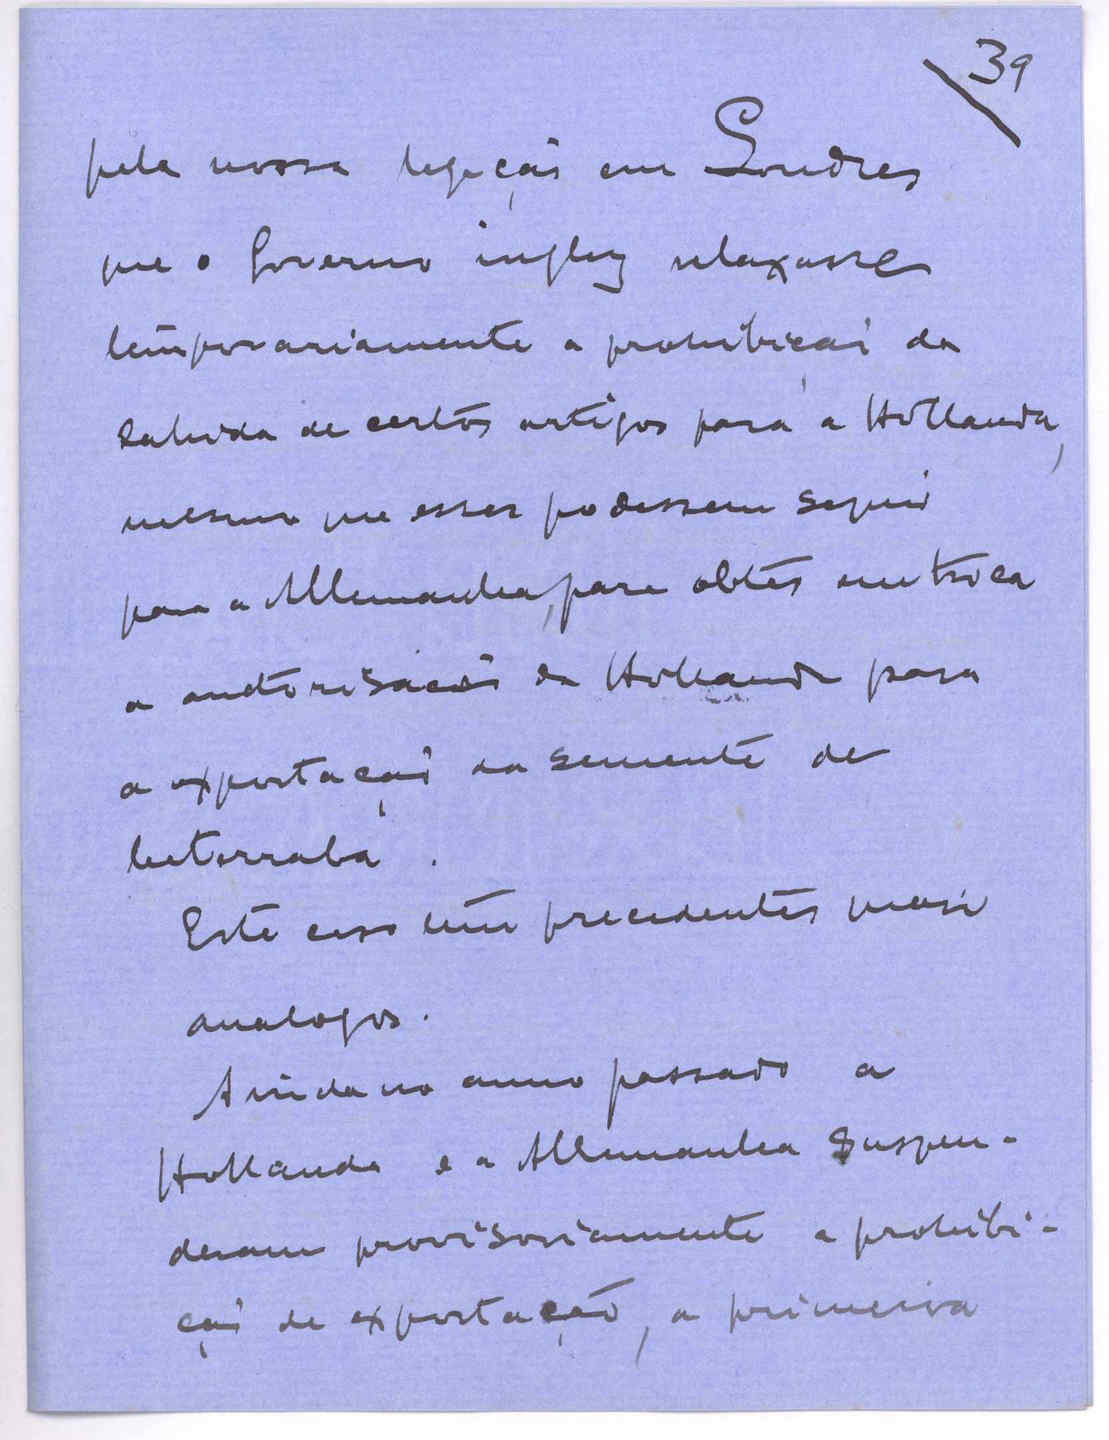 39
pela nossa legação em Londres
que o Governo inglez relaxasse
temporariamente a prohibição da
sahida de certos artigos para a Hollanda,
mesmo que esses podessem seguir
para a Allemanha, para obter em troca
a auctorisação da Hollanda para
a exportação da semente de
beterraba.
Este caso tem precedentes quasi
analogos.
Ainda no anno passado a
Hollanda e a Allemanha suspen-
deram provisoriamente a prohibi-
ção de exportação, a primeira